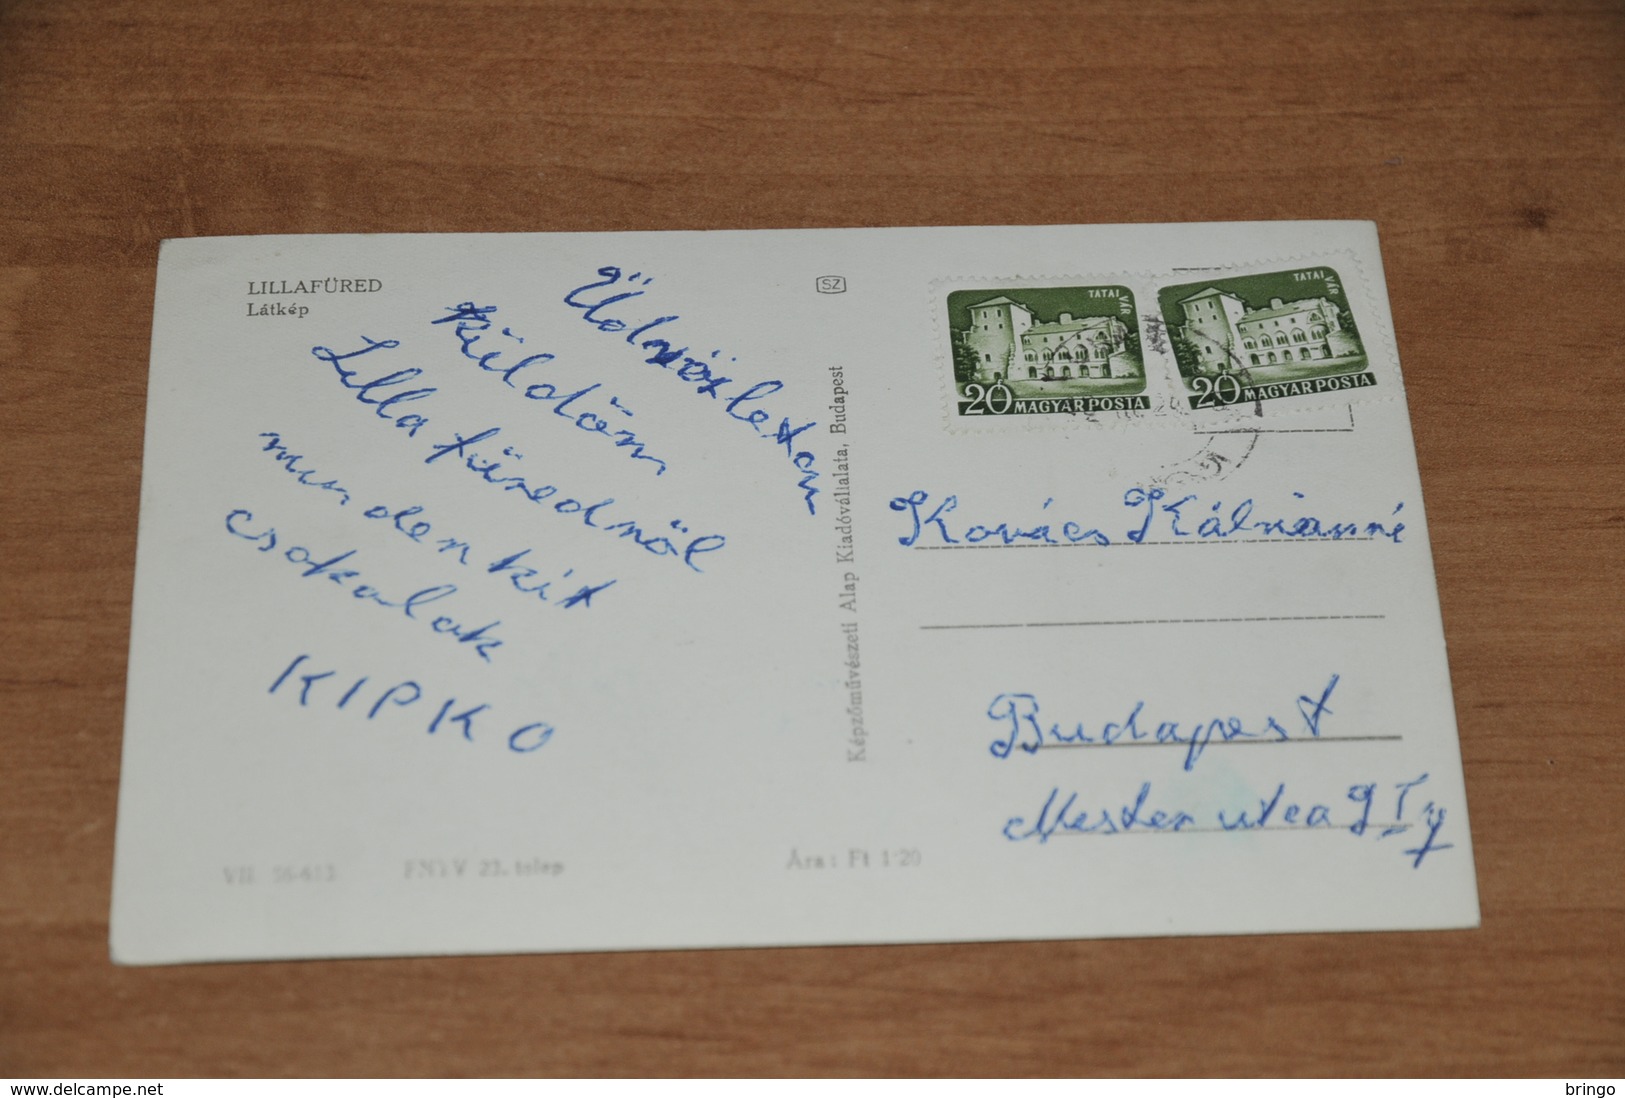 LILLAFÜRED
Látkép
Üdvözletem
küldöm
Lilla füredröl
mindenkit
csokolok
KIPKO
SZ
Képzőművészeti Alap Kiadóvállalata, Budapest
TATAI VÁR
20 MAGYAR POSTA
TATAI VÁR
20 MAGYAR POSTA
Kovács Kálmánné
Budapest
Mester utca
23. telep
Ára: Ft 1·20
www.delcampe.net
bringo